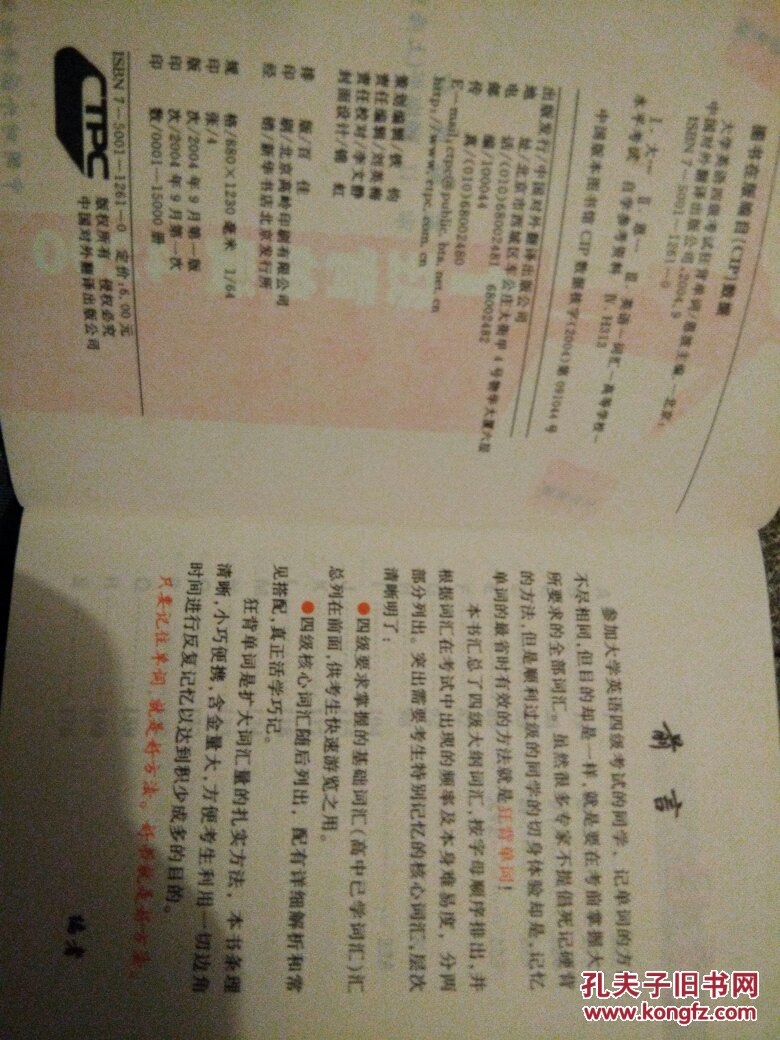 图书在版编目(CIP)数据
大学英语四级考试狂背单词/
中国对外翻译出版公司,2004.9
ISBN 7-5001-1261-0
Ⅰ.大… Ⅱ. Ⅲ.英语-词汇-高等学校-
水平考试 自学参考资料 Ⅳ.H313
中国版本图书馆 CIP 数据核字(2004)第 091044 号
出版发行/中国对外翻译出版公司
地 址/北京市西城区车公庄大街甲 4 号物华大厦六层
电 话/(010)68002481 68002482
邮 编/100044
传 真/(010)68002480
E-mail:ctpc@public.bta.net.cn
http://www.ctpc.com.cn
策划编辑/铁 钧
责任编辑/刘英梅
责任校对/李文静
封面设计/
排 版/百 佳
印 刷/北京高岭印刷有限公司
经 销/新华书店北京发行所
规 格/880×1230 毫米 1/64
印 张/4
版 次/2004 年 9 月第一版
印 次/2004 年 9 月第一次
印 数/0001—15000 册
ISBN 7-5001-1261-0 定价:6.00 元
CTPC
版权所有 侵权必究
中国对外翻译出版公司
前 言
参加大学英语四级考试的同学,记单词的方
不尽相同,但目的却是一样,就是要在考前掌握大
所要求的全部词汇。虽然很多专家不提倡死记硬背
的方法,但是顺利过级的同学的切身体验却是,记忆
单词的最省时有效的方法就是狂背单词!
本书汇总了四级大纲词汇,按字母顺序排出,并
根据词汇在考试中出现的频率及本身难易度,分两
部分列出。突出需要考生特别记忆的核心词汇,层次
清晰明了:
●四级要求掌握的基础词汇(高中已学词汇)汇
总列在前面,供考生快速游览之用。
●四级核心词汇随后列出,配有详细解析和常
见搭配,真正活学巧记。
狂背单词是扩大词汇量的扎实方法,本书条理
清晰,小巧便携,含金量大,方便考生利用一切边角
时间进行反复记忆以达到积少成多的目的。
只要记住单词,就是好方法。
编者
孔夫子旧书网
www.kongfz.com